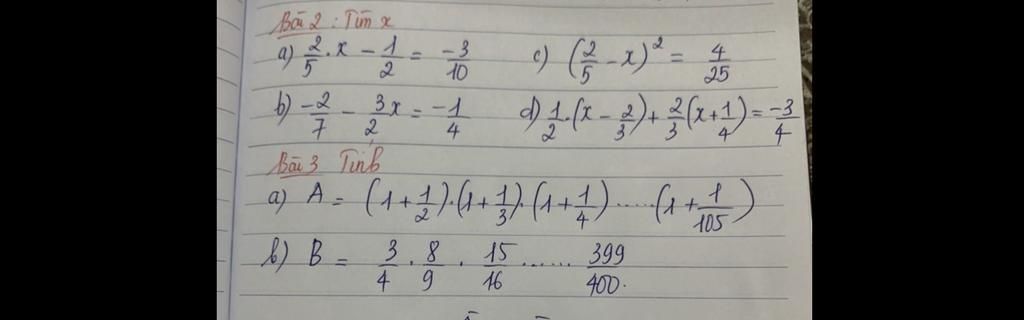 Bài 2 : Tìm x
a) 2/5 . x - 1/2 = -3/10 c) (2/5 - x)² = 4/25
b) -2/7 - 3/2 x = -1/4 d) 1/2 . (x - 2/3) + 2/3 (x + 1/4) = -3/4
Bài 3 Tính
a) A = (1 + 1/2) . (1 + 1/3) . (1 + 1/4) ..... (1 + 1/105)
b) B = 3/4 . 8/9 . 15/16 ...... 399/400.